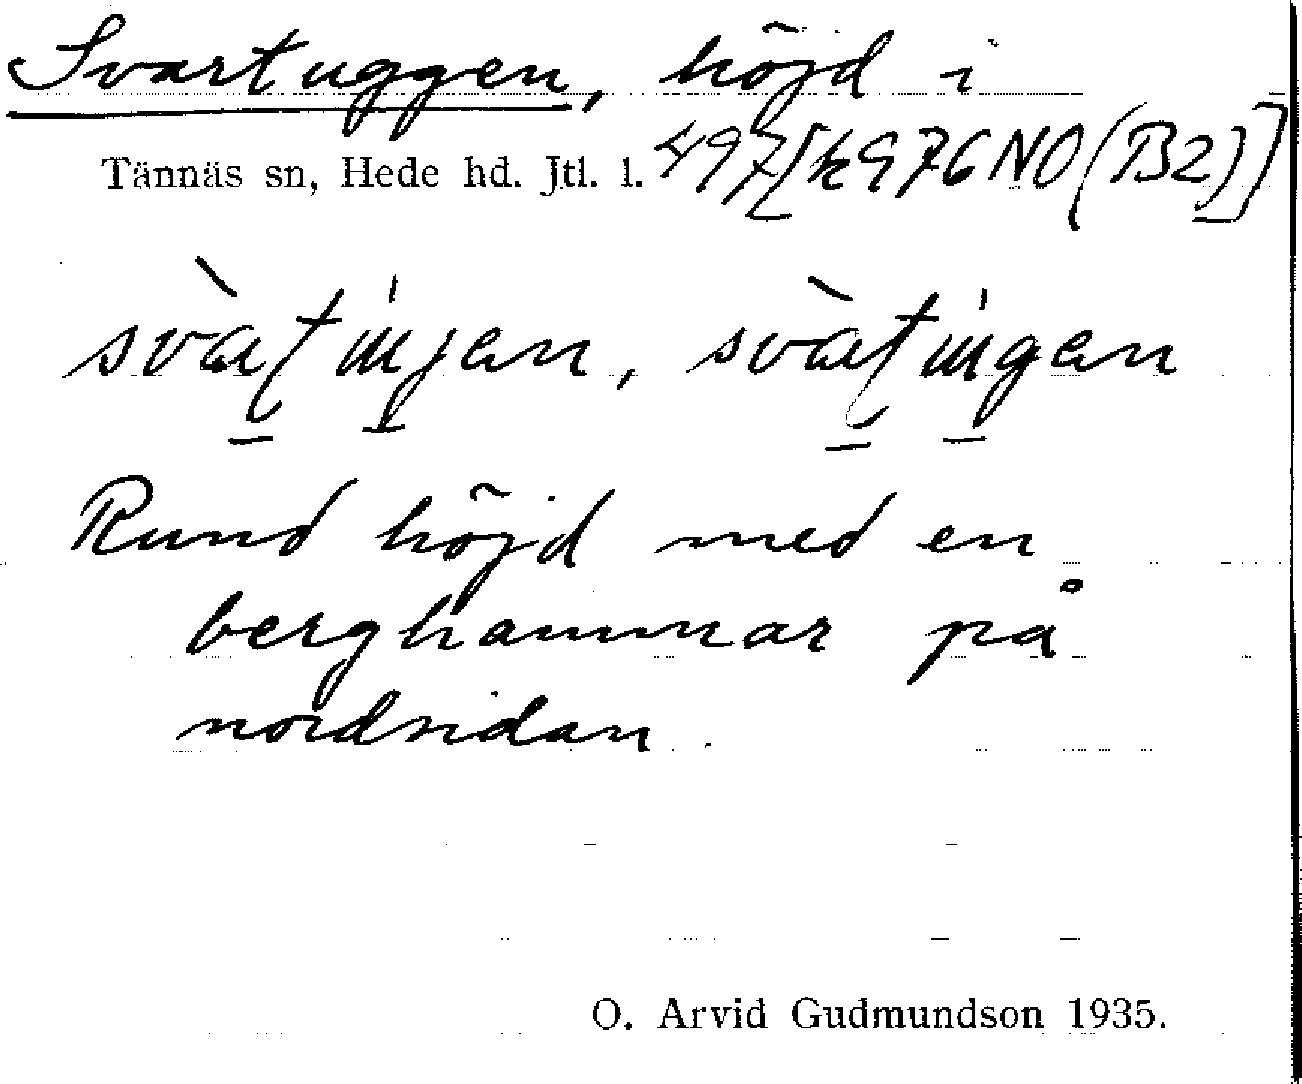 Svartuggen, höjd i
Tännäs sn, Hede hd. Jtl. l. 497 [k976NO(B2)]
Rund höjd med en
berghammar på
nordsidan
O. Arvid Gudmundson 1935.